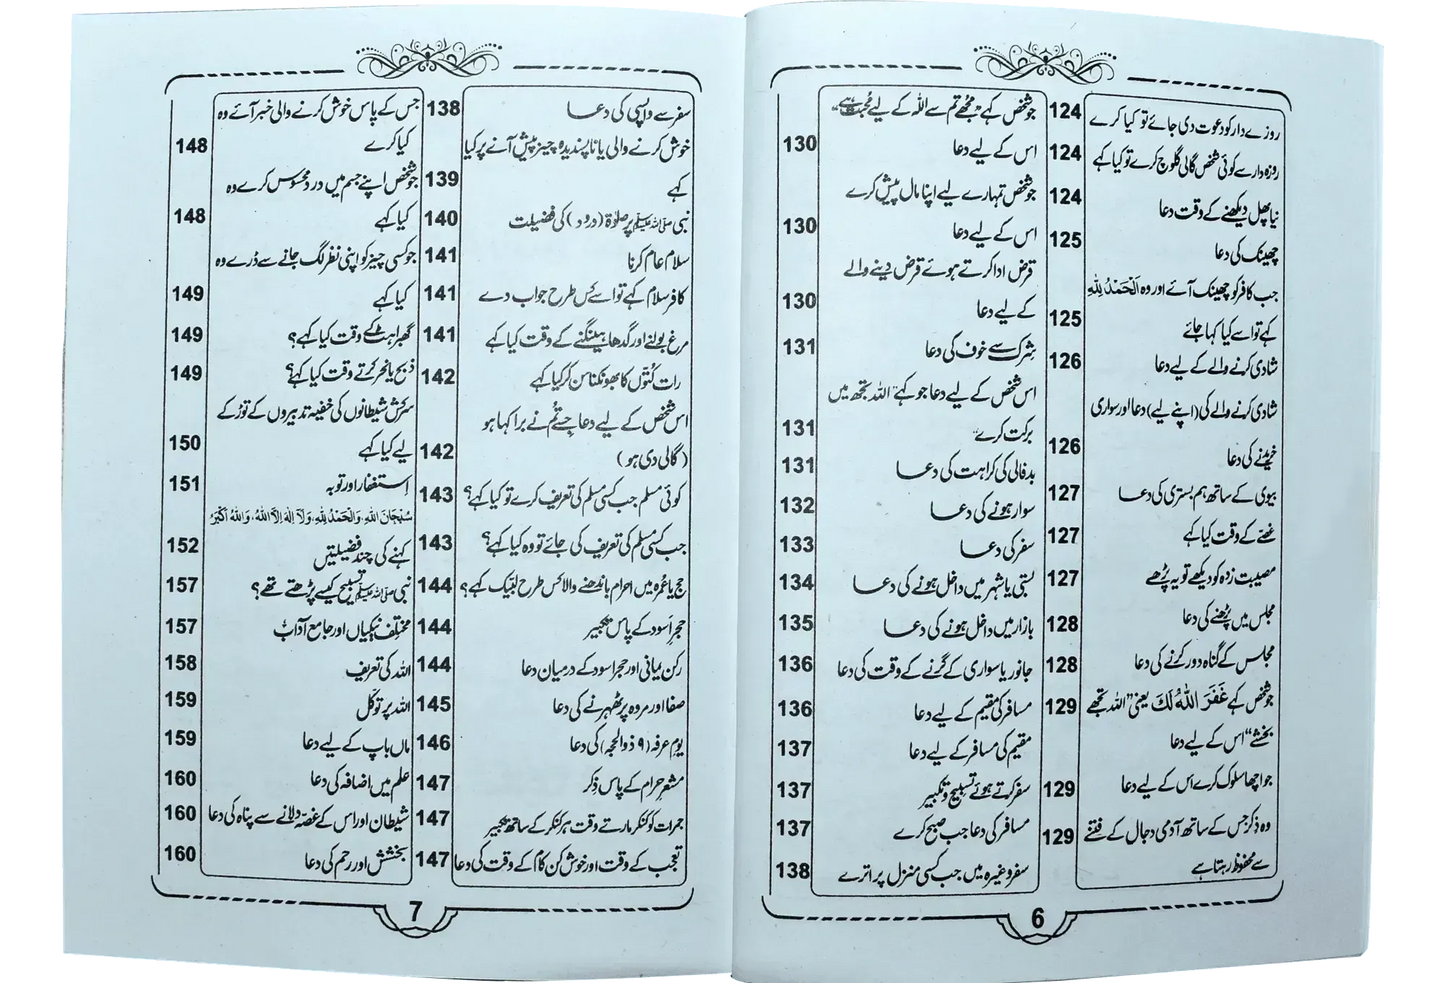 روزے دار کو دعوت دی جائے تو کیا کرے 124
روزہ دار سے کوئی شخص گالی گلوچ کرے تو کیا کہے 124
نیا پھل دیکھنے کے وقت دعا 124
چھینک کی دعا 125
جب کافر کو چھینک آئے اور وہ اَلْحَمْدُ لِلّٰہِ
کہے تو اسے کیا کہا جائے 125
شادی کرنے والے کے لیے دعا 126
شادی کرنے والے کی (اپنے لیے) دعا اور سواری
خریدنے کی دعا 126
بیوی کے ساتھ ہم بستری کی دعا 127
غصّے کے وقت کیا کہے 127
مصیبت زدہ کو دیکھے تو یہ پڑھے 127
مجلس میں پڑھنے کی دعا 128
مجلس کے گناہ دور کرنے کی دعا 128
جو شخص کہے غَفَرَ اللّٰہُ لَکَ یعنی "اللہ تجھے 129
بخشے" اس کے لیے دعا
جو اچھا سلوک کرے اس کے لیے دعا 129
وہ ذکر جس کے ساتھ آدمی دجال کے فتنے 129
سے محفوظ رہتا ہے
جو شخص کہے "مجھے تم سے اللہ کے لیے محبت ہے"
اس کے لیے دعا 130
جو شخص تمہارے لیے اپنا مال پیش کرے
اس کے لیے دعا 130
قرض ادا کرتے ہوئے قرض دینے والے
کے لیے دعا 130
شرک سے خوف کی دعا 131
اس شخص کے لیے دعا جو کہے "اللہ تجھ میں
برکت کرے" 131
بدفالی کی کراہت کی دعا 131
سوار ہونے کی دعا 132
سفر کی دعا 133
بستی یا شہر میں داخل ہونے کی دعا 134
بازار میں داخل ہونے کی دعا 135
جانور یا سواری کے گرنے کے وقت کی دعا 136
مسافر کی مقیم کے لیے دعا 136
مقیم کی مسافر کے لیے دعا 137
سفر کرتے ہوئے تسبیح و تکبیر 137
مسافر کی دعا جب صبح کرے 137
سفر وغیرہ میں جب کسی منزل پر اترے 138
6
سفر سے واپسی کی دعا 138
خوش کرنے والی یا ناپسندیدہ چیز پیش آنے پر کیا
کہے 139
نبی ﷺ پر صلوٰۃ (درود) کی فضیلت 140
سلام عام کرنا 141
کافر سلام کہے تو اسے کس طرح جواب دے 141
مرغ بولنے اور گدھا ہینگنے کے وقت کیا کہے 141
رات کتوں کا بھونکنا سن کر کیا کہے 142
اس شخص کے لیے دعا جسے تم نے برا کہا ہو
(گالی دی ہو) 142
کوئی مسلم جب کسی مسلم کی تعریف کرے تو کیا کہے؟ 143
جب کسی مسلم کی تعریف کی جائے تو وہ کیا کہے؟ 143
حج یا عمرہ میں احرام باندھنے والا کس طرح لبیک کہے؟ 144
حجر اسود کے پاس تکبیر 144
رکن یمانی اور حجر اسود کے درمیان دعا 144
صفا اور مروہ پر ٹھہرنے کی دعا 145
یوم عرفہ (۹ ذوالحجہ) کی دعا 146
مشعر حرام کے پاس ذکر 147
جمرات کو کنکر مارتے وقت ہر کنکر کے ساتھ تکبیر 147
تعجب کے وقت اور خوش کن کام کے وقت کی دعا 147
جس کے پاس خوش کرنے والی خبر آئے وہ
کیا کرے 148
جو شخص اپنے جسم میں درد محسوس کرے وہ
کیا کہے 148
جو کسی چیز کو اپنی نظر لگ جانے سے ڈرے وہ
کیا کہے 149
گھبراہٹ کے وقت کیا کہے؟ 149
ذبح یا نحر کرتے وقت کیا کہے؟ 149
سرکش شیطانوں کی خفیہ تدبیروں کے توڑ کے
لیے کیا کہے 150
استغفار اور توبہ 151
سُبْحَانَ اللّٰہِ، وَالْحَمْدُ لِلّٰہِ، وَلَا اِلٰہَ اِلَّا اللّٰہُ، وَاللّٰہُ اَکْبَرُ
کہنے کی چند فضیلتیں 152
نبی ﷺ تسبیح کیسے پڑھتے تھے؟ 157
مختلف نیکیاں اور جامع آداب 157
اللہ کی تعریف 158
اللہ پر توکّل 159
ماں باپ کے لیے دعا 159
علم میں اضافہ کی دعا 160
شیطان اور اس کے غصہ دلانے سے پناہ کی دعا 160
بخشش اور رحم کی دعا 160
7